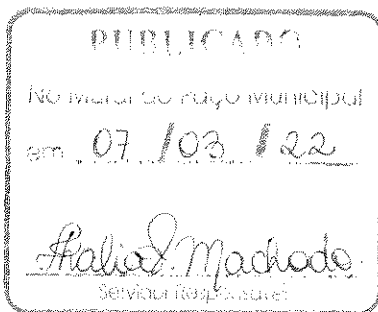 PUBLICADO
No Mural do Paço Municipal
em 07 / 03 / 22
Thalia S. Machado
Servidor Responsável